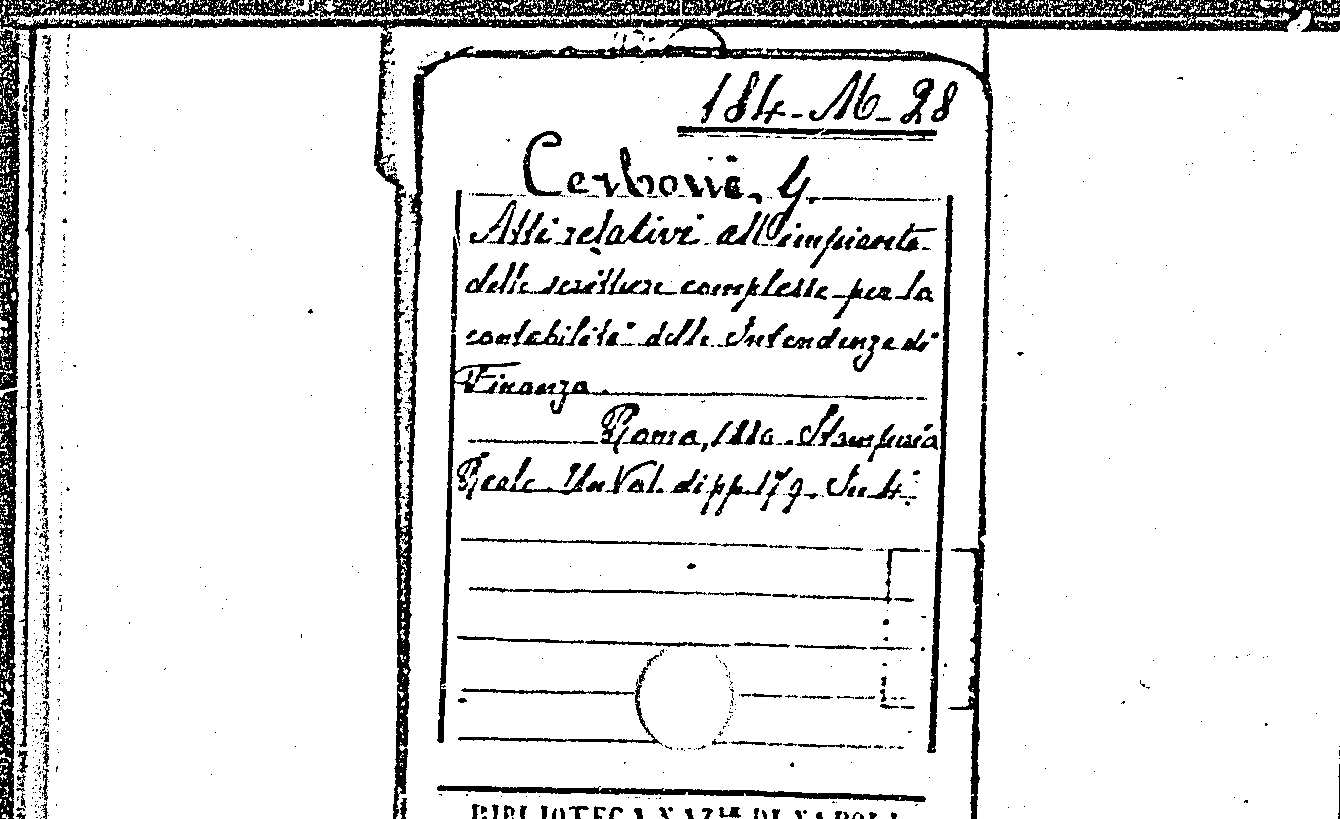 184-M-28
Cerboni, G.
Atti relativi all'impianto
delle scritture complesse per la
contabilità delle Intendenze di
Finanza.
Roma, 1880. Stamperia
Reale. Un Vol. di pp. 179. In 4°.
BIBLIOTECA NAZ.LE DI NAPOLI